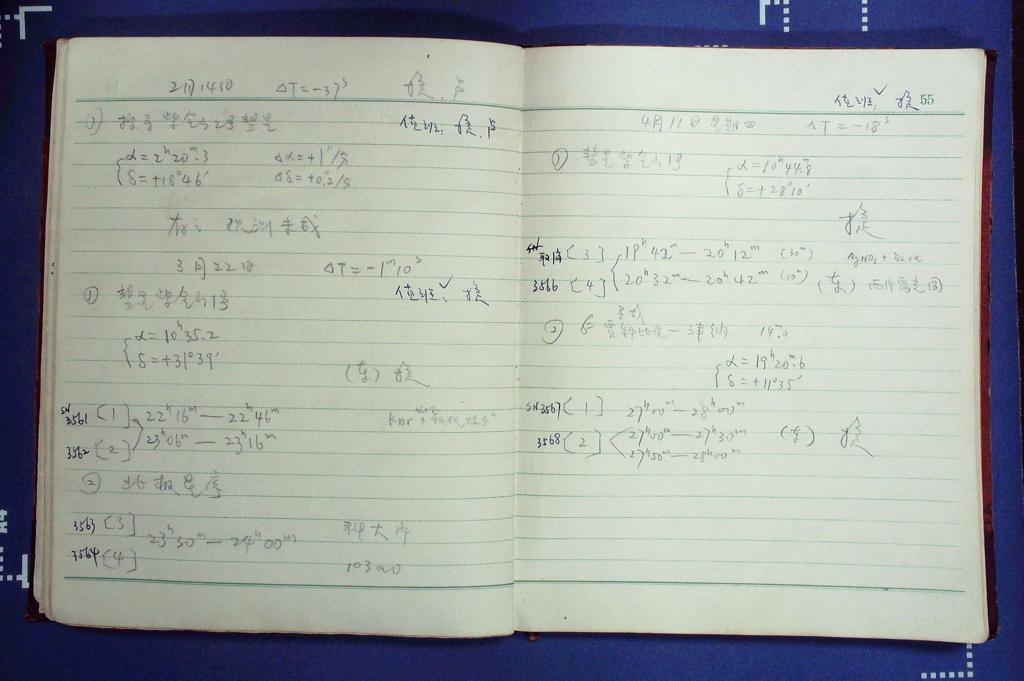 2月14日 ΔT=-37ˢ
① 搜寻紫金山2号彗星 值班:
α=2ʰ20ᵐ.3 Δα=+1ᵐ/分
δ=+18°46′ Δδ=+0.2/分
观测未成
3月22日 ΔT=-1ᵐ10ˢ
① 彗星紫金山1号 值班: ✓
α=10ʰ35.2
δ=+31°39′
(东)
SN 3561 [1] 22ʰ16ᵐ—22ʰ46ᵐ
3562 [2] 23ʰ06ᵐ—23ʰ16ᵐ
② 北极星序
3563 [3] 23ʰ30ᵐ—24ʰ00ᵐ 科大序
3564 [4] 103aO
值班: ✓ 55
4月11日 星期四 ΔT=-18ˢ
① 彗星紫金山1号
α=10ʰ44ᵐ.8
δ=+28°10′
SN [3] 19ʰ42ᵐ—20ʰ12ᵐ (30ᵐ)
3566 [4] 20ʰ32ᵐ—20ʰ42ᵐ (10ᵐ) (东)
② 贾科比尼—津纳 14ᵐ.0
α=19ʰ20ᵐ.6
δ=+11°35′
SN3567 [1] 27ʰ00ᵐ—28ʰ00ᵐ
3568 [2] 27ʰ00ᵐ—27ʰ30ᵐ (东)
27ʰ50ᵐ—28ʰ00ᵐ